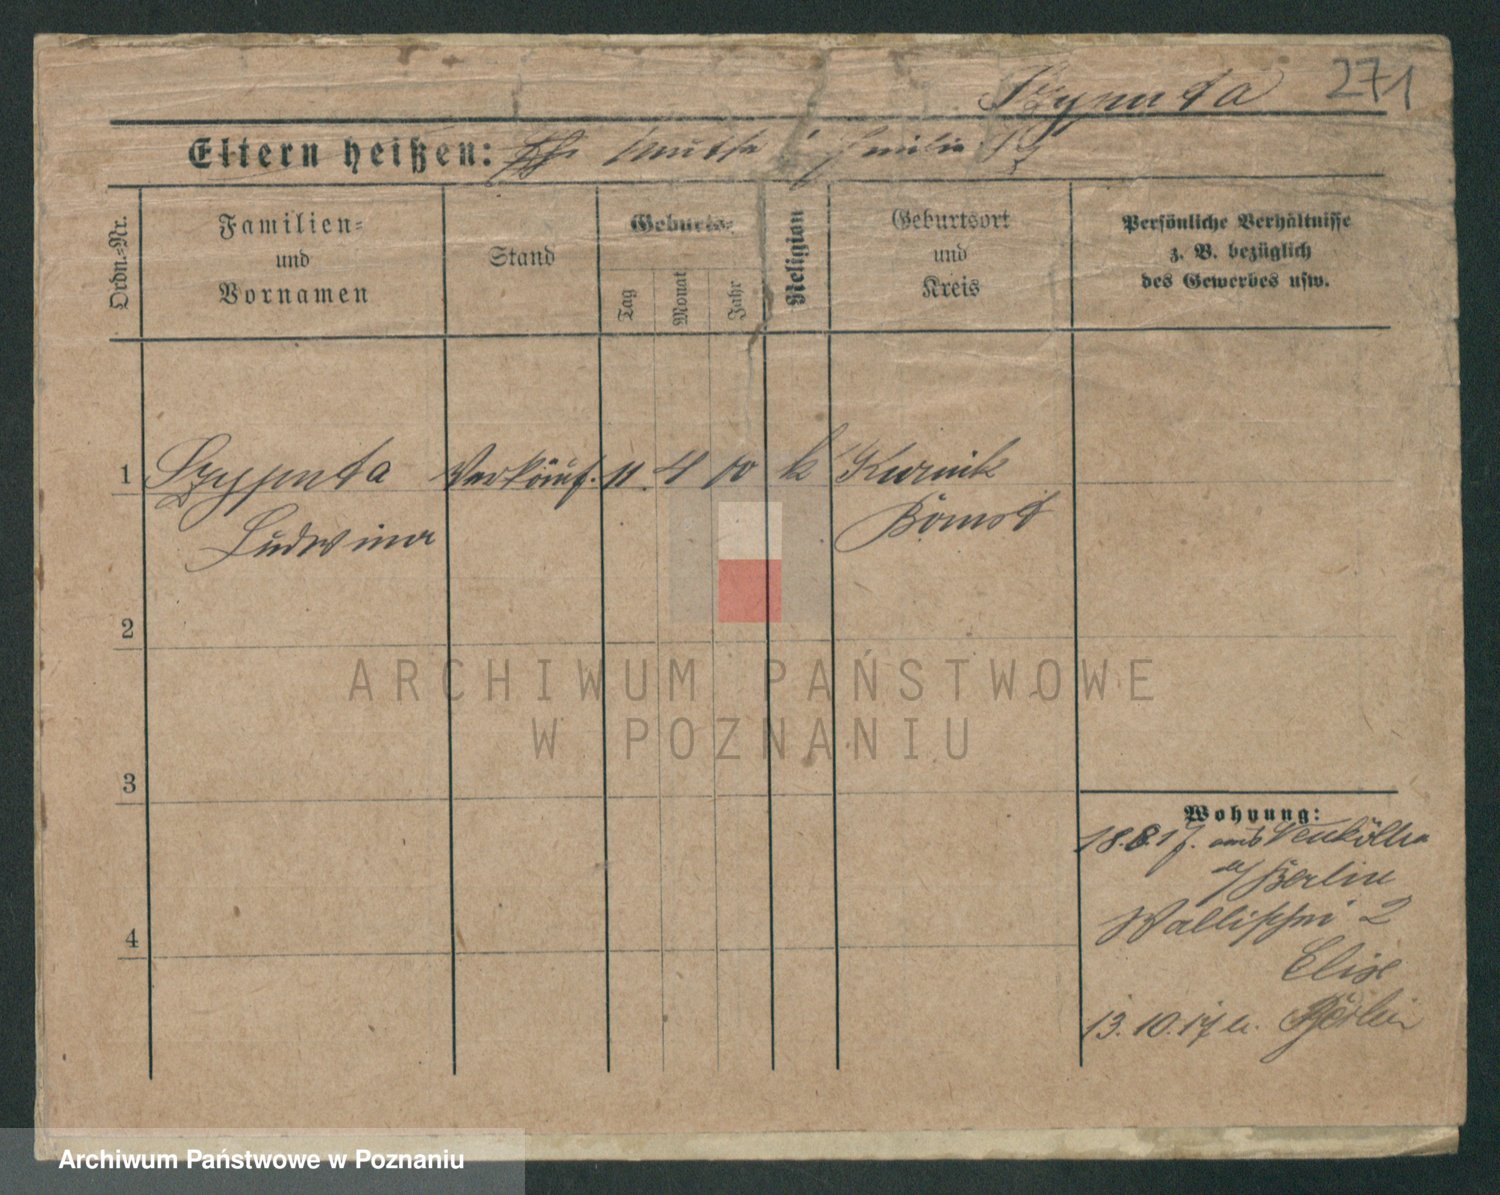 Szyputa 271
Eltern heißen: Mutter Emilie
Ordn.-Nr.
Familien-
und
Vornamen
Stand
Geburts-
Tag
Monat
Jahr
Religion
Geburtsort
und
Kreis
Persönliche Verhältnisse
z. B. bezüglich
des Gewerbes usw.
1 Szyputa Verkäuf. 11. 4 10 k Kurnik
Ludwina Bomst
2
ARCHIWUM PAŃSTWOWE
W POZNANIU
3
Wohnung:
18.8.17. aus Neukölln
Berlin
Wallischei 2
4
13.10.17 n. Berlin
Archiwum Państwowe w Poznaniu